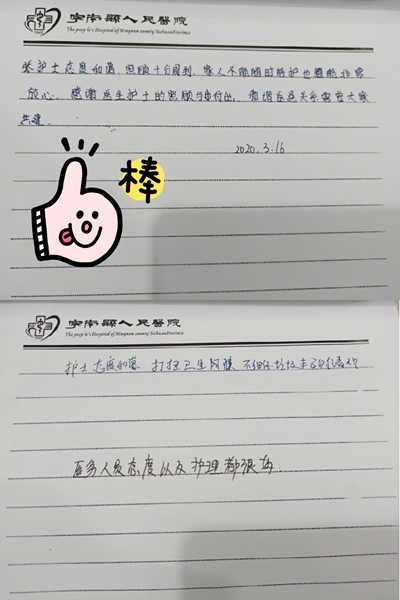 宁南縣人民醫院
The peop le's Hospital of Ningnan county SichuanProvince
护士态度和蔼、照顾十分周到，家人不能随时陪护也能非常
放心，感谢医生护士的照顾与付出，和谐医患关系需要大家
共建。
2020.3.16
棒
宁南縣人民醫院
The peop le's Hospital of Ningnan county SichuanProvince
护士态度和蔼、打扫卫生阿姨
医务人员态度以及护理都很好.